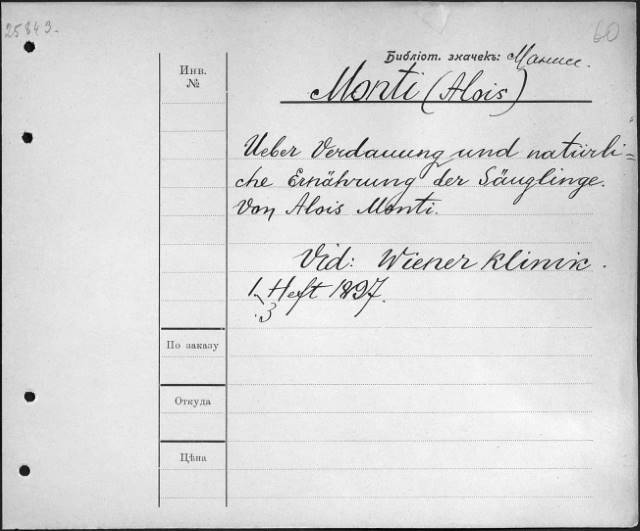 25843.
60
Инв.
№
Библіот. значекъ:
Monti (Alois)
Ueber Verdauung und natürli=
che Ernährung der Säuglinge.
Von Alois Monti.
Vid: Wiener Klinik.
1 Heft 1897.
3
По заказу
Откуда
Цѣна